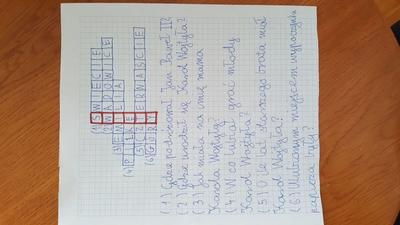 (1) ŚWIECIE
(2) WADOWICE
(3) EMILIA
(4) PIŁKĘ
(5) CZTERNAŚCIE
(6) GÓRY
(1) Gdzie podróżował Jan Paweł II?
(2) Gdzie urodził się Karol Wojtyła?
(3) Jak miała na imię mama
Karola Wojtyły?
(4) W co lubiał grać młody
Karol Wojtyła?
(5) O ile lat starszego brata miał
Karol Wojtyła?
(6) Ulubionym miejscem wypoczynku
papieża były?